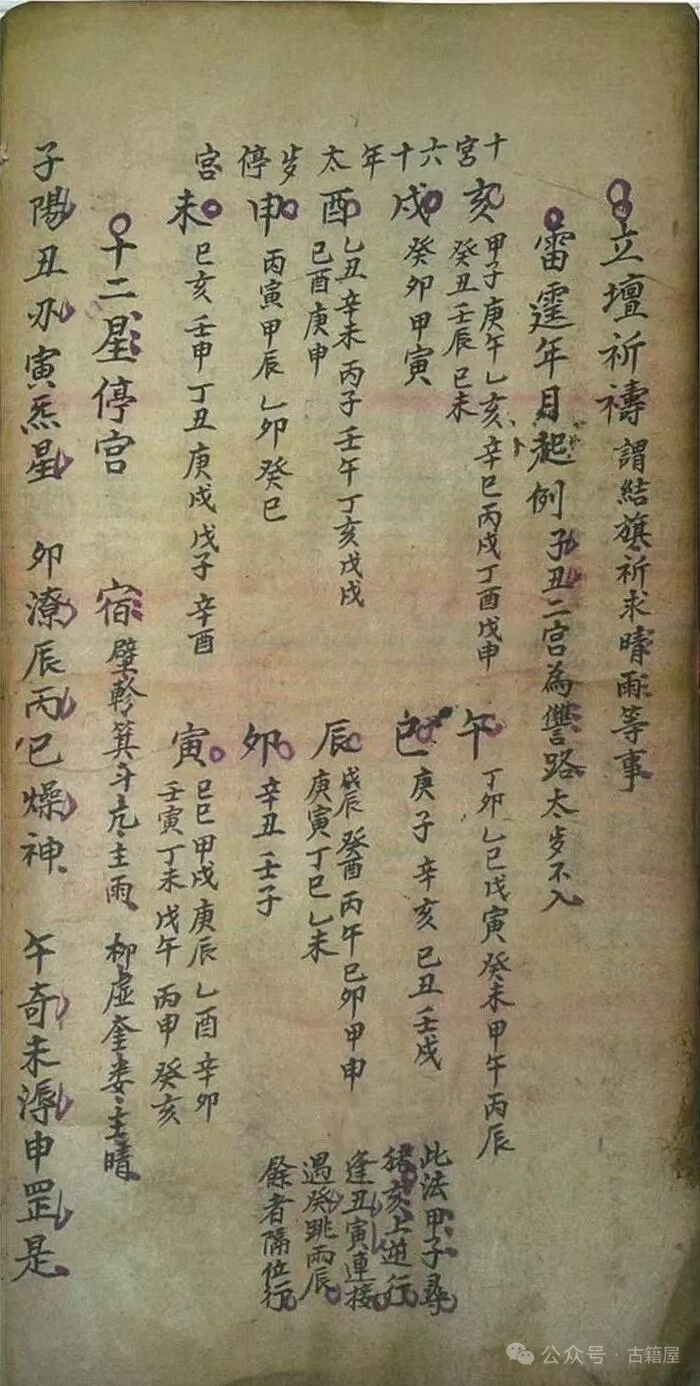 立壇祈禱 謂結旗祈求晴雨等事
雷霆年月起例 子丑二宮為讐路太歲不入
十宮六十年太歲停宮
亥 甲子庚午乙亥辛巳丙戌丁酉戊申
癸丑壬辰己未
戌 癸卯甲寅
酉 乙丑辛未丙子壬午丁亥戊戌
己酉庚申
申 丙寅甲辰乙卯癸巳
未 己亥壬申丁丑庚戌戊子辛酉
午 丁卯乙巳戊寅癸未甲午丙辰
巳 庚子辛亥己丑壬戌
辰 戊辰癸酉丙午己卯甲申
庚寅丁巳乙未
卯 辛丑壬子
寅 己巳甲戌庚辰乙酉辛卯
壬寅丁未戊午丙申癸亥
此法甲子尋
猪亥上逆行
逢丑寅連接
遇癸跳兩辰
餘者隔位行
十二星停宮 宿 壁軫箕斗危主雨 柳虛奎婁主晴
子陽丑刃寅炁星 卯潦辰丙巳燥神 午奇未溽申罡是
公众号·古籍屋